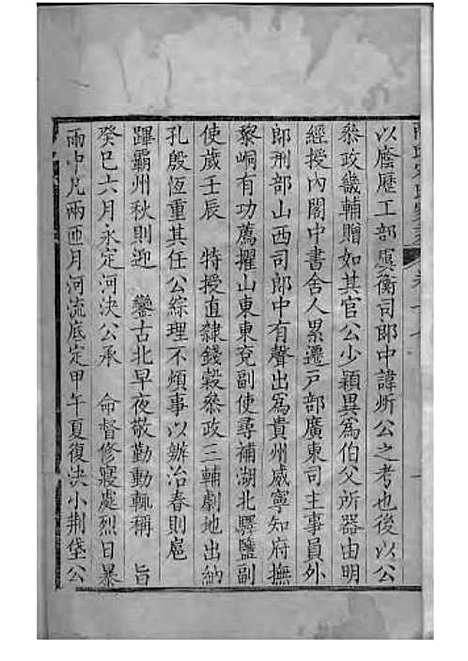 以廕歷工部虞衡司郎中諱所公之考也後以公
叅政畿輔贈如其官公少穎異爲伯父所器由明
經授內閣中書舍人累遷戶部廣東司主事員外
郎刑部山西司郎中有聲出爲貴州威寧知府撫
黎峒有功薦擢山東東兗副使尋補湖北驛鹽副
使歲壬辰　特授直隸錢穀叅政三輔劇地出納
孔殷恆重其任公綜理不煩事以辦治春則扈
蹕霸州秋則迎　鑾古北早夜敬勤動輒稱　旨
癸巳六月永定河決公承　命督修寢處烈日暴
雨中凡兩匝月河流底定甲午夏復決小荆垡公